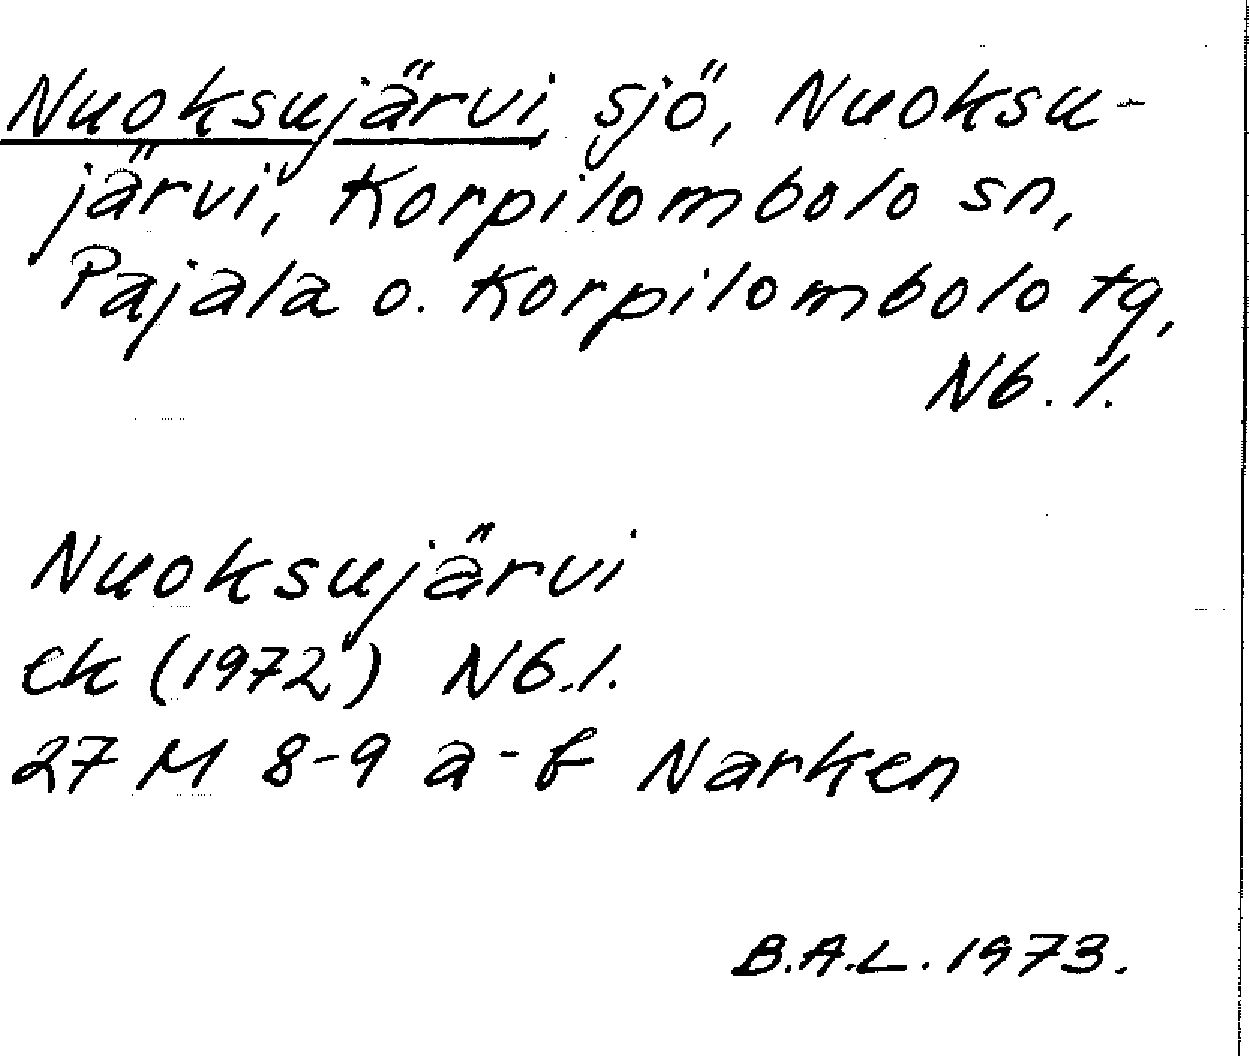 Nuoksujärvi, sjö, Nuoksu-
järvi, Korpilombolo sn,
Pajala o. Korpilombolo tg,
Nb. l.
Nuoksujärvi
ek (1972) Nb.l.
27 M 8-9 a-b Narken
B.A.L. 1973.